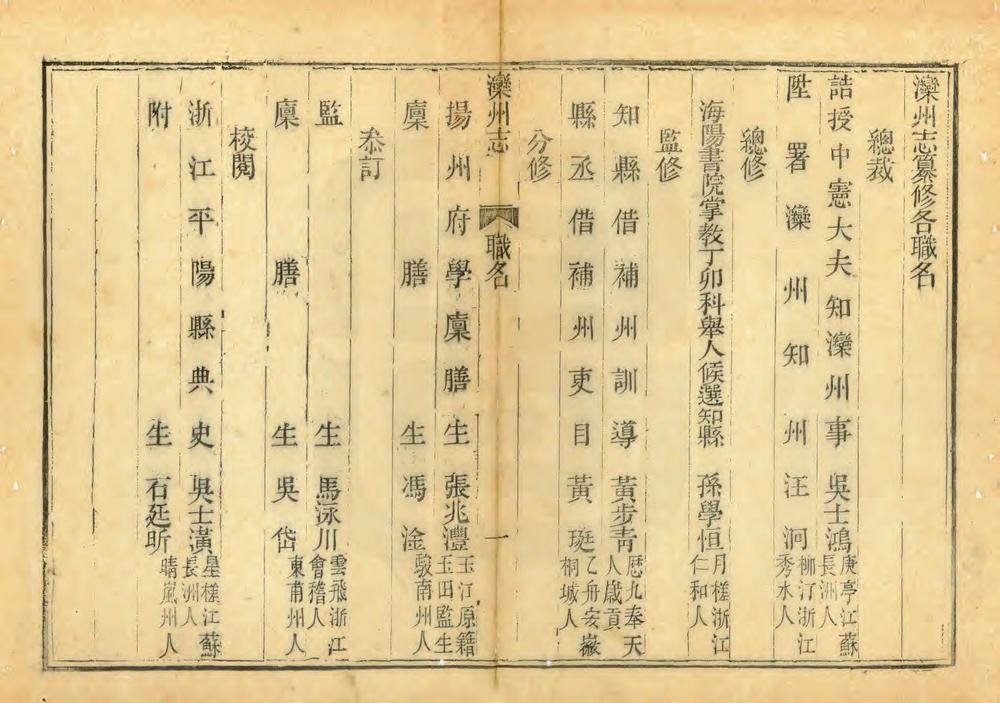 灤州志纂修各職名
總裁
誥授中憲大夫知灤州事 吳士鴻 庚亭江蘇長洲人
陞署灤州知州 汪泂 柳汀浙江秀水人
總修
海陽書院掌教丁卯科舉人候選知縣 孫學恒 月槎浙江仁和人
監修
知縣借補州訓導 黃步青 歷九奉天人歲貢
縣丞借補州吏目 黃珽 乙舟安徽桐城人
分修
灤州志 職名 一
揚州府學廩膳生 張兆灃 玉江原籍玉田監生
廩膳生 馮淦 駿南州人
叅訂
監生 馬泳川 雲飛浙江會稽人
廩膳生 吳岱 東甫州人
校閱
浙江平陽縣典史 吳士潢 星槎江蘇長洲人
附生 石延昕 晴嵐州人